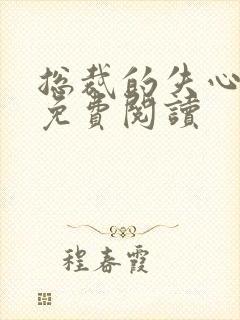 总裁的失心
免費閱讀
程春霞